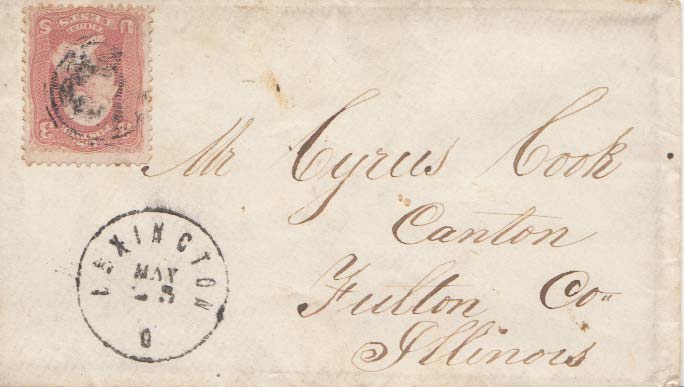 U S
THREE CENTS
3 3
Mr Cyrus Cook
Canton
Fulton Co"
Illinois
LEXINGTON
MAY
O